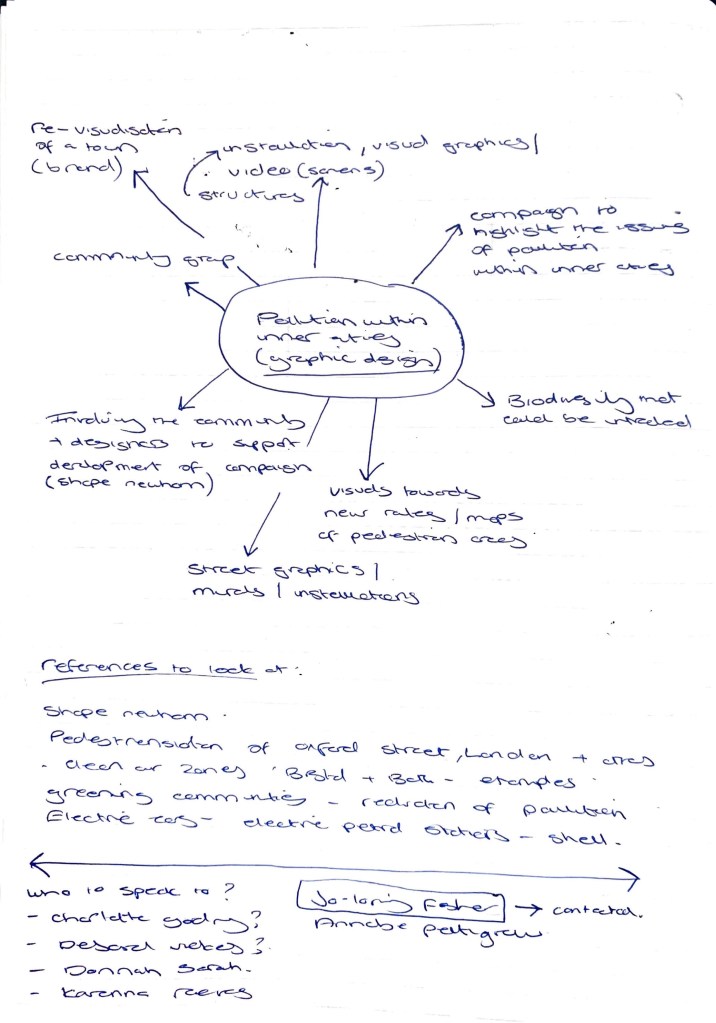 re-visualisation
of a town
(brand)
installation, visual graphics/
video (screens)
structures
campaign to
highlight the issues
of pollution
within inner cities
community group
Pollution within
inner cities
(graphic design)
Biodiversity met
could be included
Involving the community
+ designers to support
development of campaign
(shape newham)
visuals towards
new routes / maps
of pedestrian areas
Street graphics /
murals / installations
references to look at:
Shape newham.
Pedestrianisation of oxford street, London + cities
- clean air zones Bristol + Bath - examples
greening communities - reduction of pollution
Electric cars - electric petrol stations - shell.
who to speak to?
- Charlotte ?
- Deborah ?
- Donnah Sarah.
- Karenna reeves
Jo- → contacted.
Pettigrew